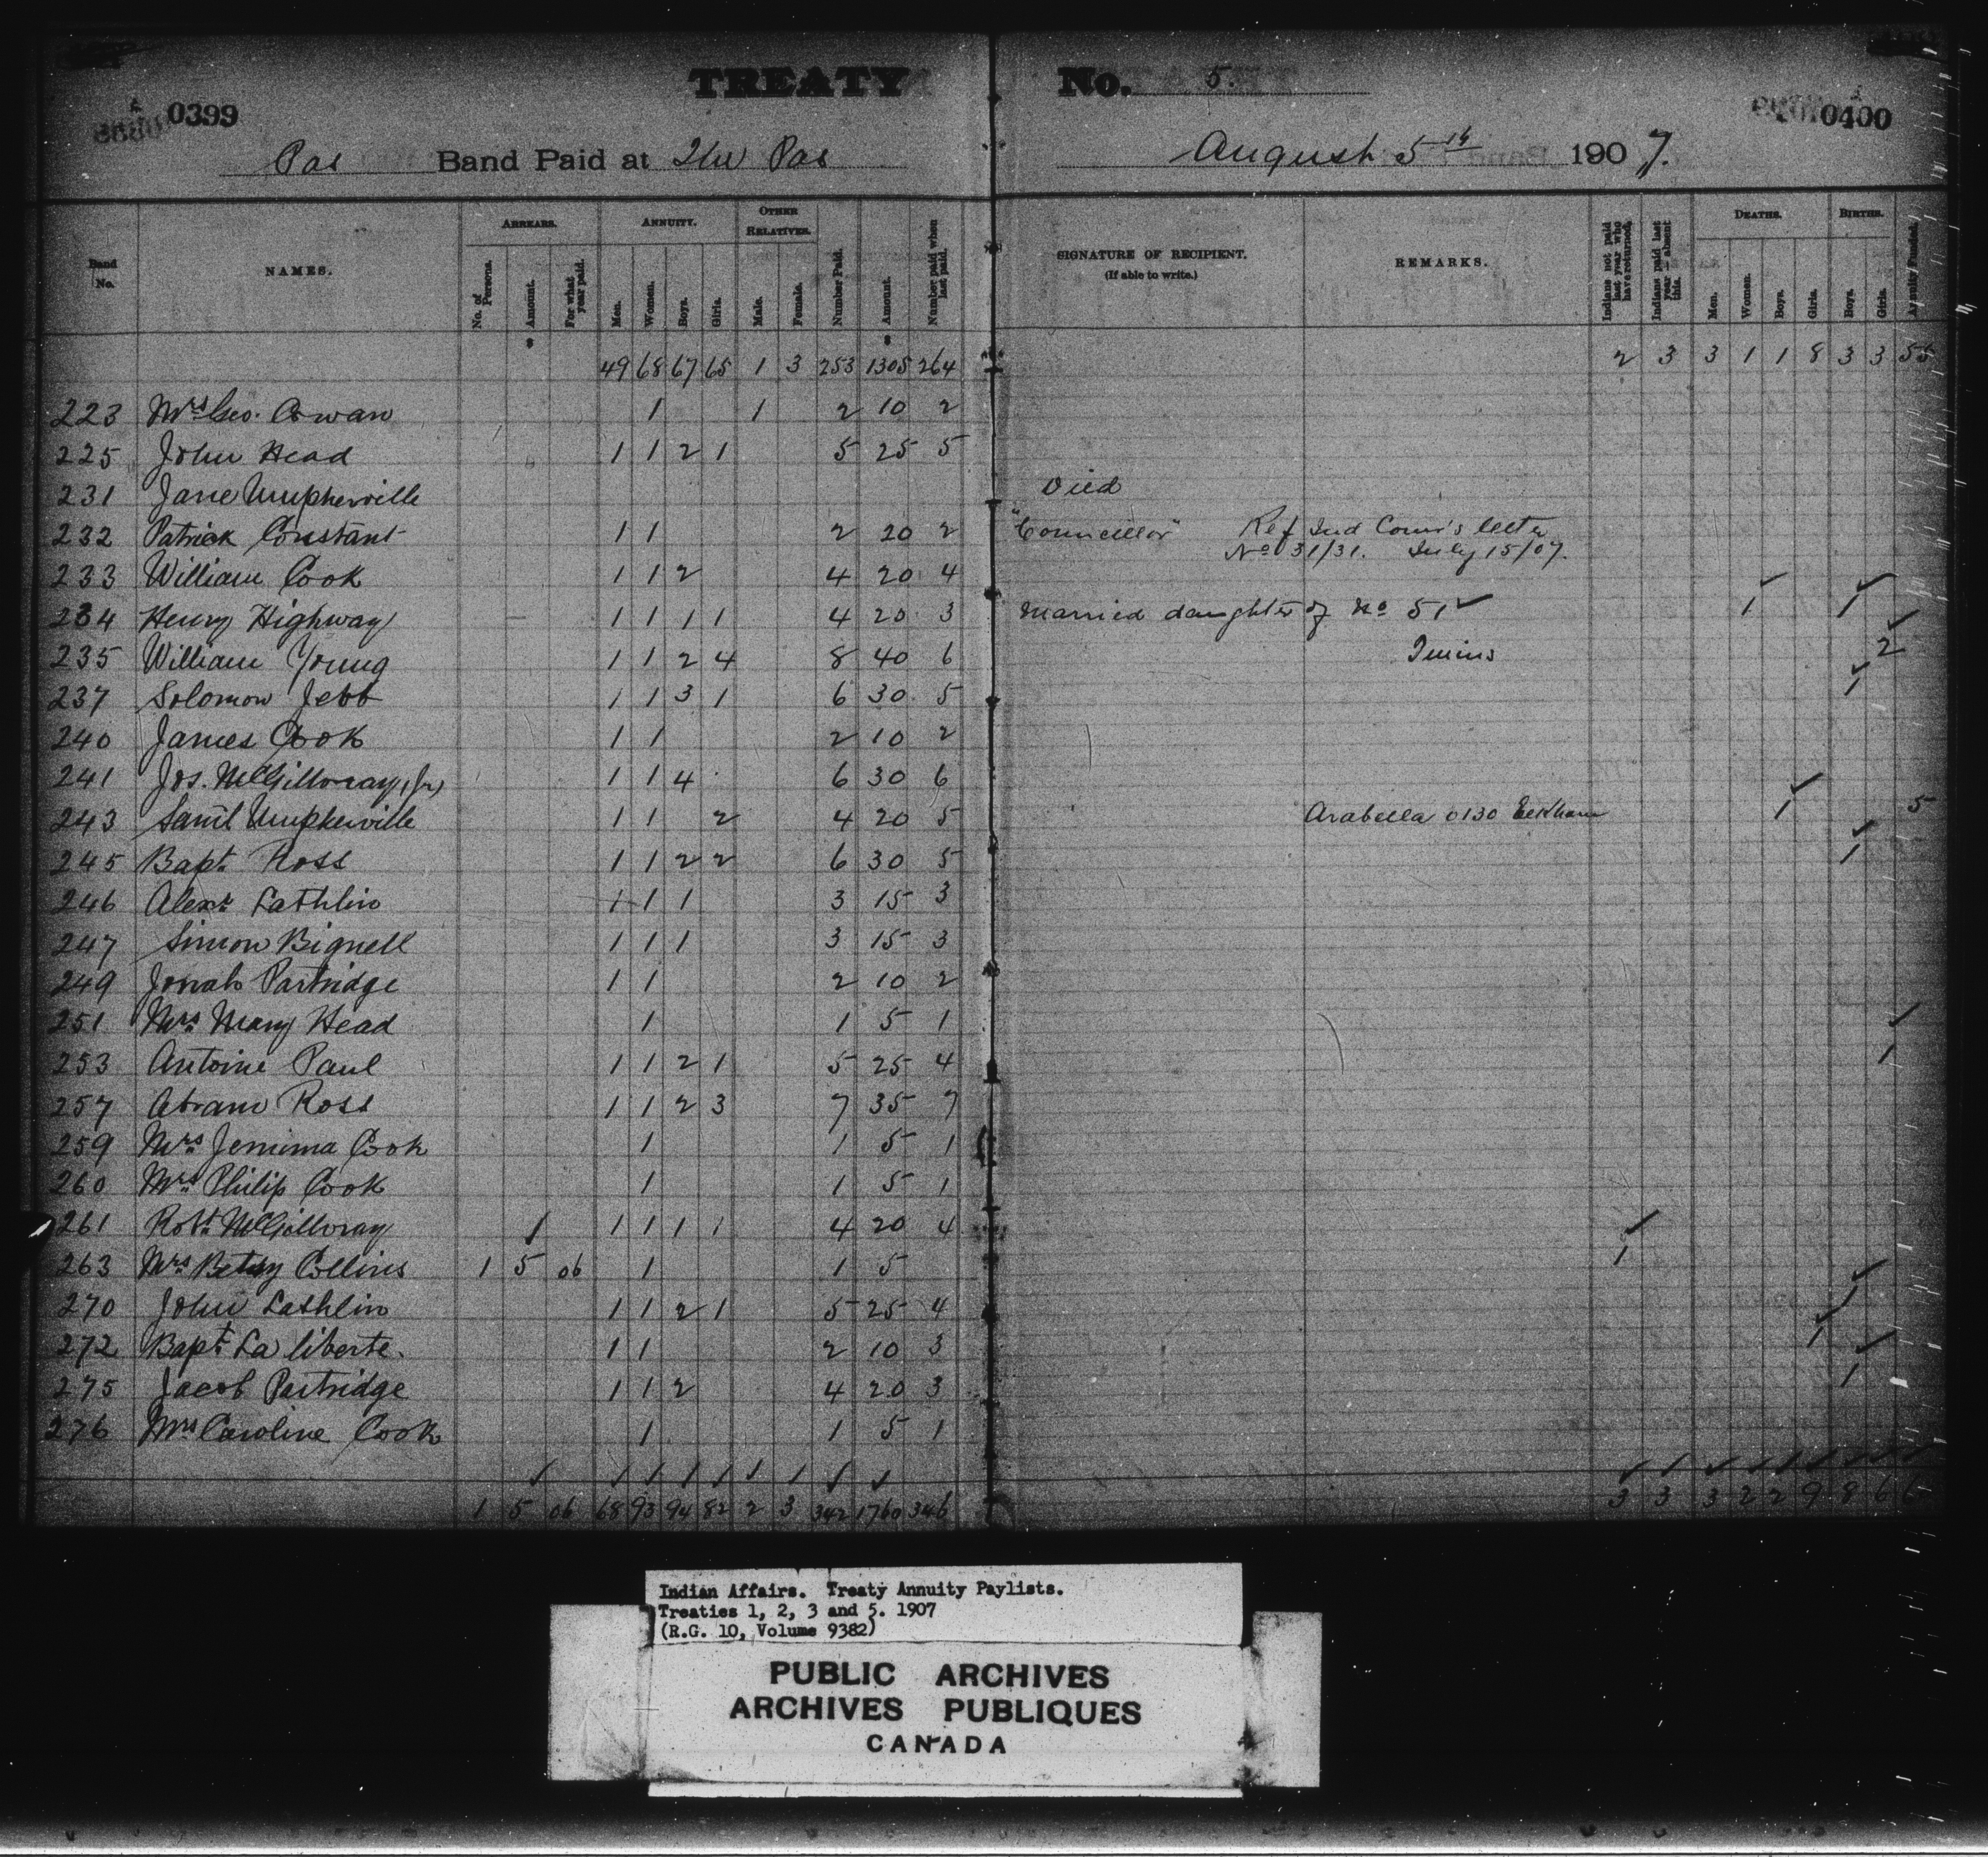 TREATY No. 5.
0399
0400
Pas Band Paid at The Pas August 5th 1907.
Band No.
NAMES.
ARREARS.
No. of Persons.
Amount.
For what year paid.
ANNUITY.
Men.
Women.
Boys.
Girls.
OTHER RELATIVES.
Male.
Female.
Number Paid.
Amount.
Number paid when last paid.
SIGNATURE OF RECIPIENT.
(If able to write.)
REMARKS.
Indians not paid last year who have returned.
Indians paid last year – absent this.
DEATHS.
Men.
Women.
Boys.
Girls.
BIRTHS.
Boys.
Girls.
Annuity Funded.
$ $
49 68 67 65 1 3 253 1305 264 2 3 3 1 1 8 3 3 55
223 Mrs Geo. Cowan 1 1 2 10 2
225 John Head 1 1 2 1 5 25 5
231 Jane Umpherville Died
232 Patrick Constant 1 1 2 20 2 "Councillor" Ref Ind Comr's letter
No 031/31. July 15/07.
233 William Cook 1 1 2 4 20 4
234 Henry Highway 1 1 1 1 4 20 3 Married daughter of No 51 ✓ 1 1
235 William Young 1 1 2 4 8 40 6 Twins 2
237 Solomon Jebb 1 1 3 1 6 30 5 1
240 James Cook 1 1 2 10 2
241 Jos. McGillvray, (Jr) 1 1 4 6 30 6
243 Saml Umpherville 1 1 2 4 20 5 Arabella 0130 1 5
245 Bapt. Ross 1 1 2 2 6 30 5 1
246 Alexr Lathlin 1 1 1 3 15 3
247 Simon Bignell 1 1 1 3 15 3
249 Jonah Partridge 1 1 2 10 2
251 Mrs Mary Head 1 1 5 1
253 Antoine Paul 1 1 2 1 5 25 4 1
257 Abram Ross 1 1 2 3 7 35 7
259 Mrs Jemima Cook 1 1 5 1
260 Mrs Philip Cook 1 1 5 1
261 Robt. McGillvray 1 1 1 1 4 20 4
263 Mrs Betsy Collins 1 5 06 1 1 5 1
270 John Lathlin 1 1 2 1 5 25 4 1
272 Bapt. La liberte. 1 1 2 10 3 1
275 Jacob Partridge 1 1 2 4 20 3 1
276 Mrs Caroline Cook 1 1 5 1
1 5 06 68 93 94 82 2 3 342 1760 346 3 3 3 2 2 9 8 6
Indian Affairs. Treaty Annuity Paylists.
Treaties 1, 2, 3 and 5. 1907
(R.G. 10, Volume 9382)
PUBLIC ARCHIVES
ARCHIVES PUBLIQUES
CANADA